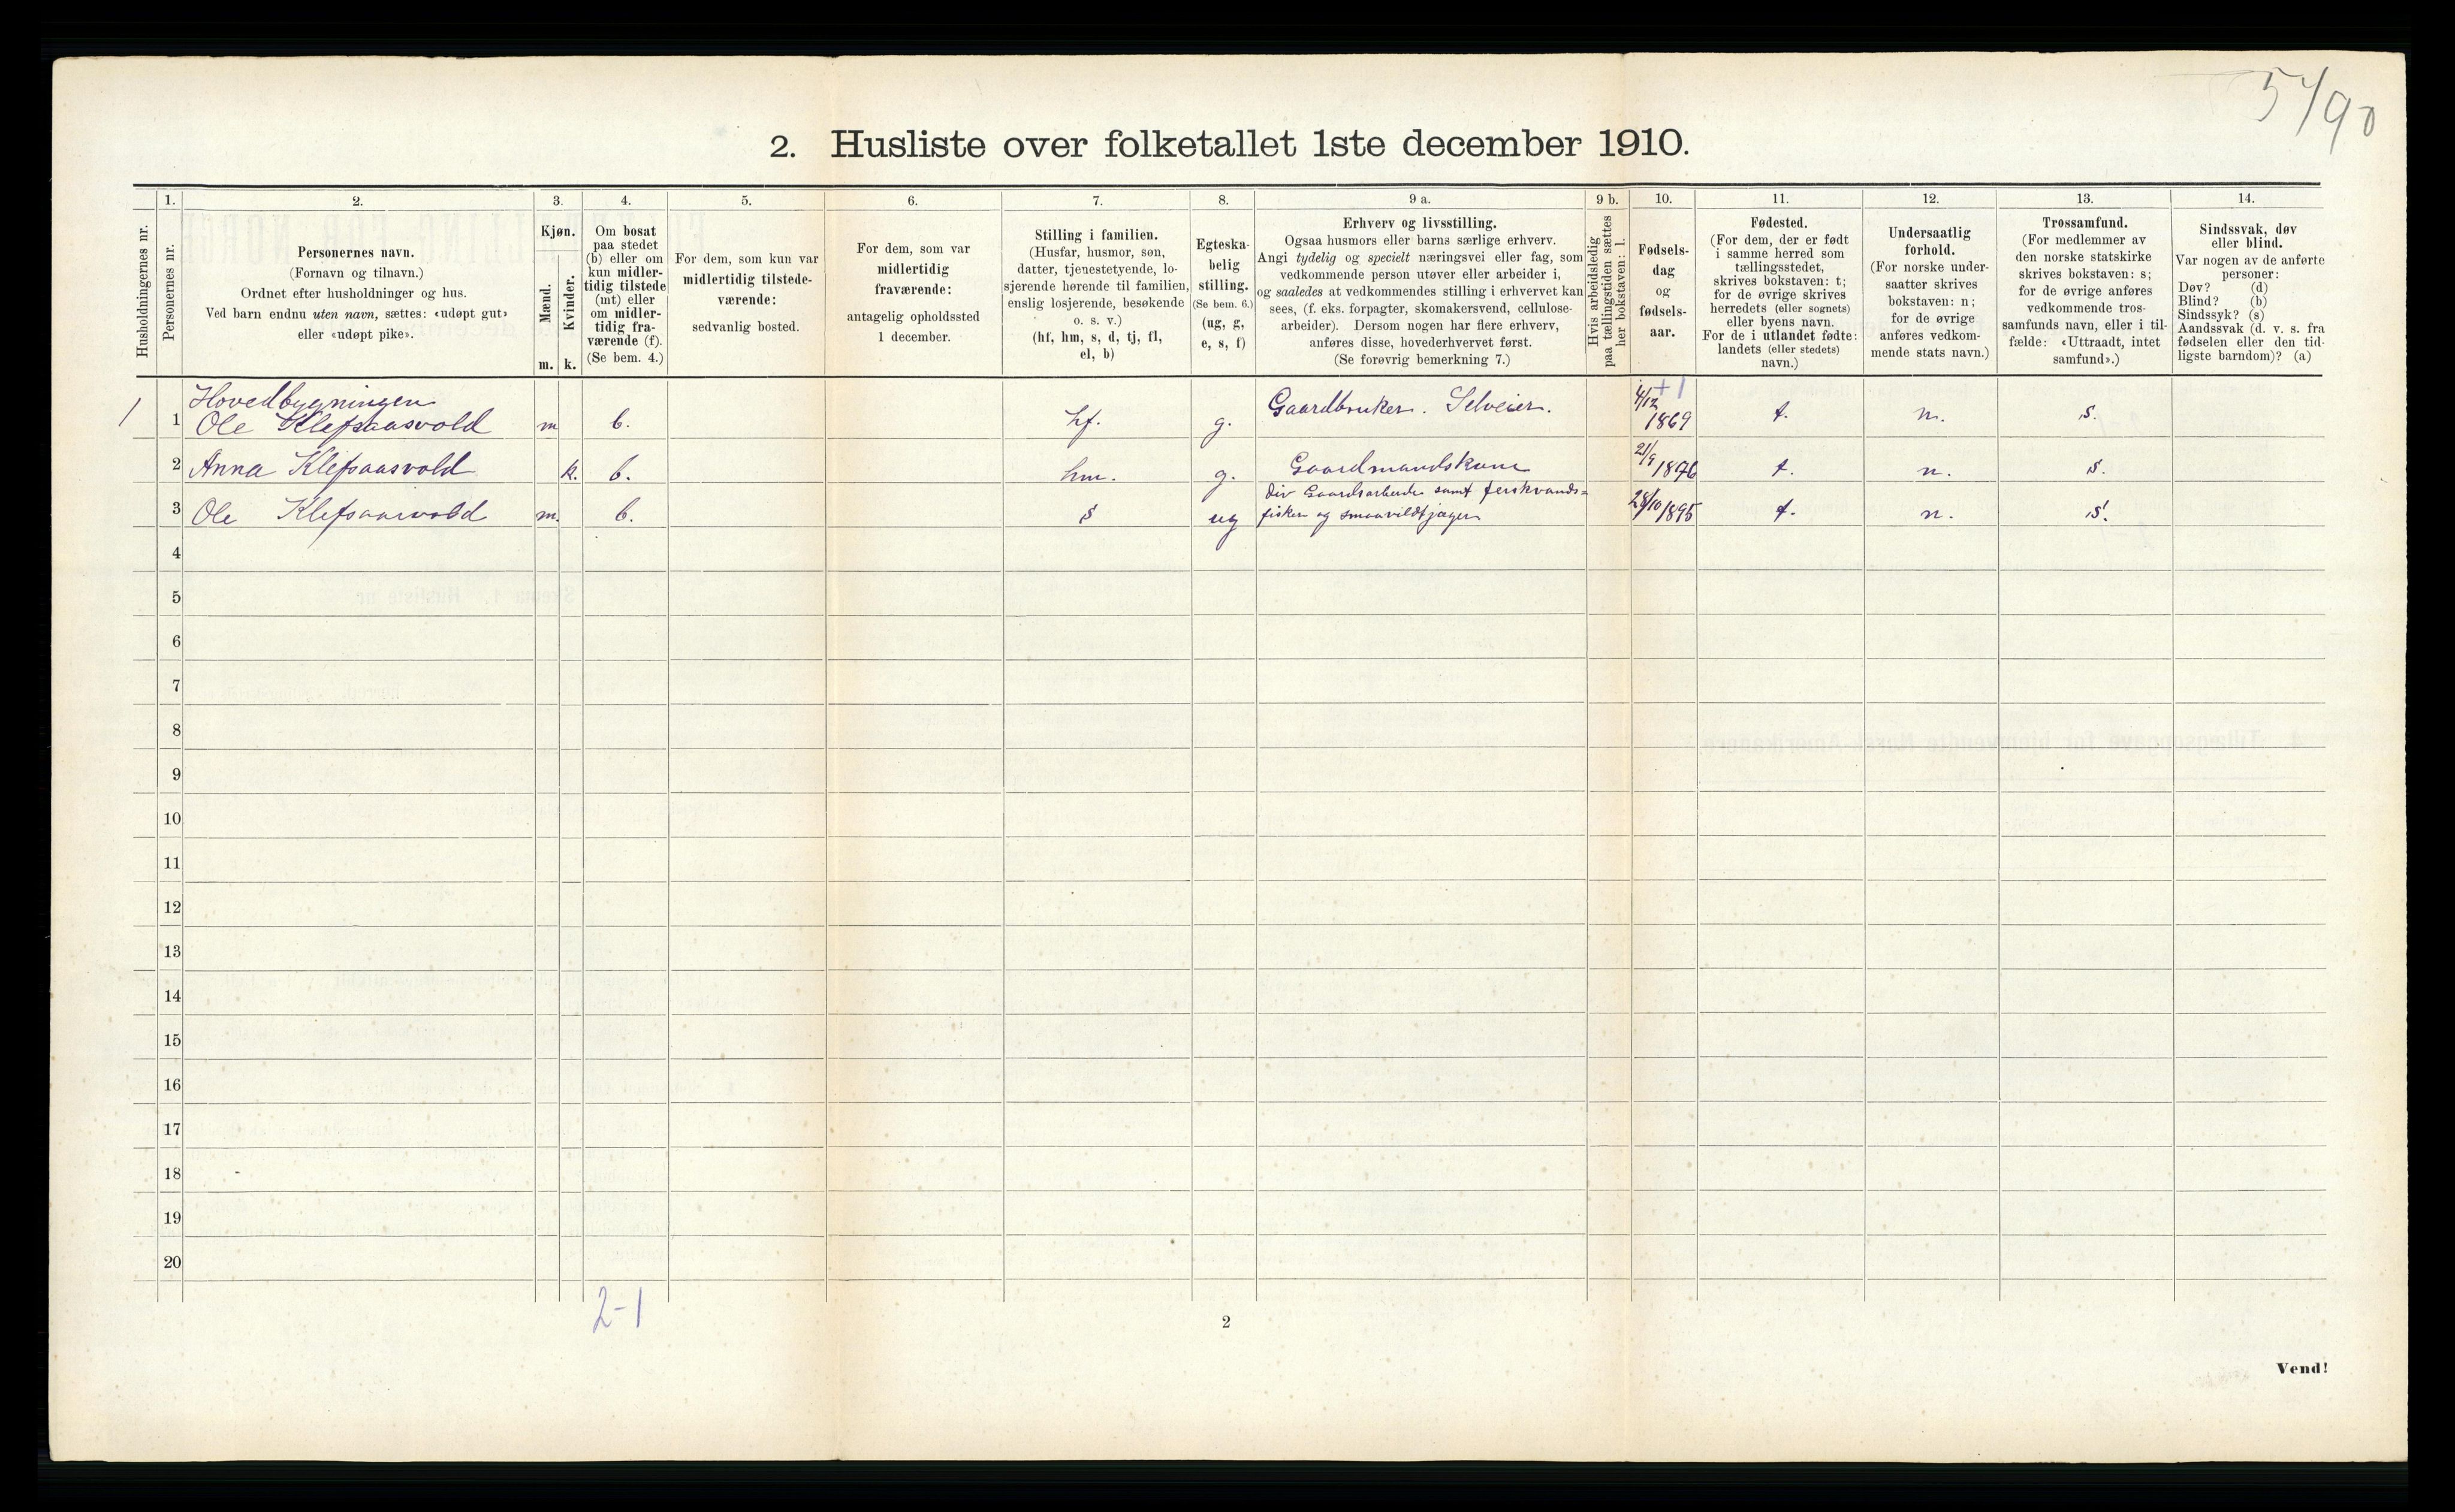 5/90
2. Husliste over folketallet 1ste december 1910.
Husholdningernes nr.
1.
Personernes nr.
2.
Personernes navn.
(Fornavn og tilnavn.)
Ordnet efter husholdninger og hus.
Ved barn endnu uten navn, sættes: «udøpt gut»
eller «udøpt pike».
3.
Kjøn.
Mænd.
m.
Kvinder.
k.
4.
Om bosat
paa stedet
(b) eller om
kun midler-
tidig tilstede
(mt) eller
om midler-
tidig fra-
værende (f).
(Se bem. 4.)
5.
For dem, som kun var
midlertidig tilstede-
værende:
sedvanlig bosted.
6.
For dem, som var
midlertidig
fraværende:
antagelig opholdssted
1 december.
7.
Stilling i familien.
(Husfar, husmor, søn,
datter, tjenestetyende, lo-
sjerende hørende til familien,
enslig losjerende, besøkende
o. s. v.)
(hf, hm, s, d, tj, fl,
el, b)
8.
Egteska-
belig
stilling.
(Se bem. 6.)
(ug, g,
e, s, f)
9 a.
Erhverv og livsstilling.
Ogsaa husmors eller barns særlige erhverv.
Angi tydelig og specielt næringsvei eller fag, som
vedkommende person utøver eller arbeider i,
og saaledes at vedkommendes stilling i erhvervet kan
sees, (f. eks. forpagter, skomakersvend, cellulose-
arbeider). Dersom nogen har flere erhverv,
anføres disse, hovederhvervet først.
(Se forøvrig bemerkning 7.)
9 b.
Hvis arbeidsledig
paa tællingstiden sættes
her bokstaven: l.
10.
Fødsels-
dag
og
fødsels-
aar.
11.
Fødested.
(For dem, der er født
i samme herred som
tællingsstedet,
skrives bokstaven: t;
for de øvrige skrives
herredets (eller sognets)
eller byens navn.
For de i utlandet fødte:
landets (eller stedets)
navn.)
12.
Undersaatlig
forhold.
(For norske under-
saatter skrives
bokstaven: n;
for de øvrige
anføres vedkom-
mende stats navn.)
13.
Trossamfund.
(For medlemmer av
den norske statskirke
skrives bokstaven: s;
for de øvrige anføres
vedkommende tros-
samfunds navn, eller i til-
fælde: «Uttraadt, intet
samfund».)
14.
Sindssvak, døv
eller blind.
Var nogen av de anførte
personer:
Døv? (d)
Blind? (b)
Sindssyk? (s)
Aandssvak (d. v. s. fra
fødselen eller den tid-
ligste barndom)? (a)
Hovedbygningen
1 1 Ole Klefsaasvold m b. hf. g. Gaardbruker. Selveier. 4/12 1869 t. n. s.
+1
2 Anna Klefsaasvold k. b. hm. g. Gaardmandskone 21/9 1876 t. n. s.
3 Ole Klefsaasvold m. b. s ug Div Gaardsarbeide samt ferskvands=
fisker og smaavildtjæger 28/10 1895 t. n. s.
4
5
6
7
8
9
10
11
12
13
14
15
16
17
18
19
20
2-1
2
Vend!